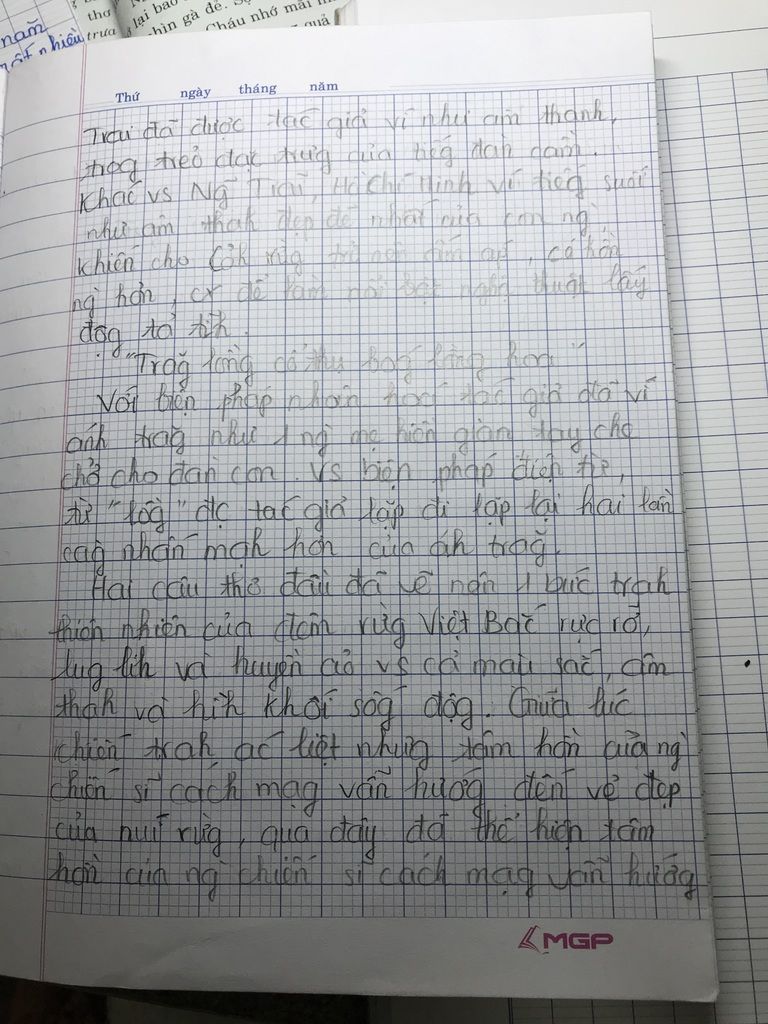 nằm
rất nhiều
thơ
trưa
lại bao
hìn gà đẻ.
Cháu nhớ mãi
quả
Thứ ngày tháng năm
Trãi đã được tác giả ví như âm thanh,
trog trẻo đặc trưg của tiếg đàn cầm.
Khác vs Ng Trãi, Hồ Chí Minh ví tiếg suối
như âm thah đẹp đẽ nhất của con ng
khiến cho cảh rừg trở nên ấm áp, có hồn
ng hơn, để làm nổi bật nghệ thuật lấy
độg tả tĩh.
"Trăg lồng cổ thụ bóg lồng hoa"
Với biện pháp nhân hoá tác giả đã ví
ánh trăg như 1 ng mẹ hiền giàn tay che
chở cho đàn con. Vs biện pháp điệp từ,
từ "lồg" đc tác giả lặp đi lặp lại hai lần
càg nhấn mạh hơn của áh trăg.
Hai câu thơ đầu đã vẽ nên 1 bức trah
thiên nhiên của đêm rừg Việt Bắc rực rỡ,
lug lih và huyền ảo vs cả màu sắc, âm
thah và hìh khối sốg độg. Giữa lúc
chiến trah ác liệt nhưg tâm hồn của ng
chiến sĩ cách mạg vẫn hướg đến vẻ đẹp
của núi rừg, qua đây đã thể hiện tâm
hồn của ng chiến sĩ cách mạg vẫn hướg
MGP